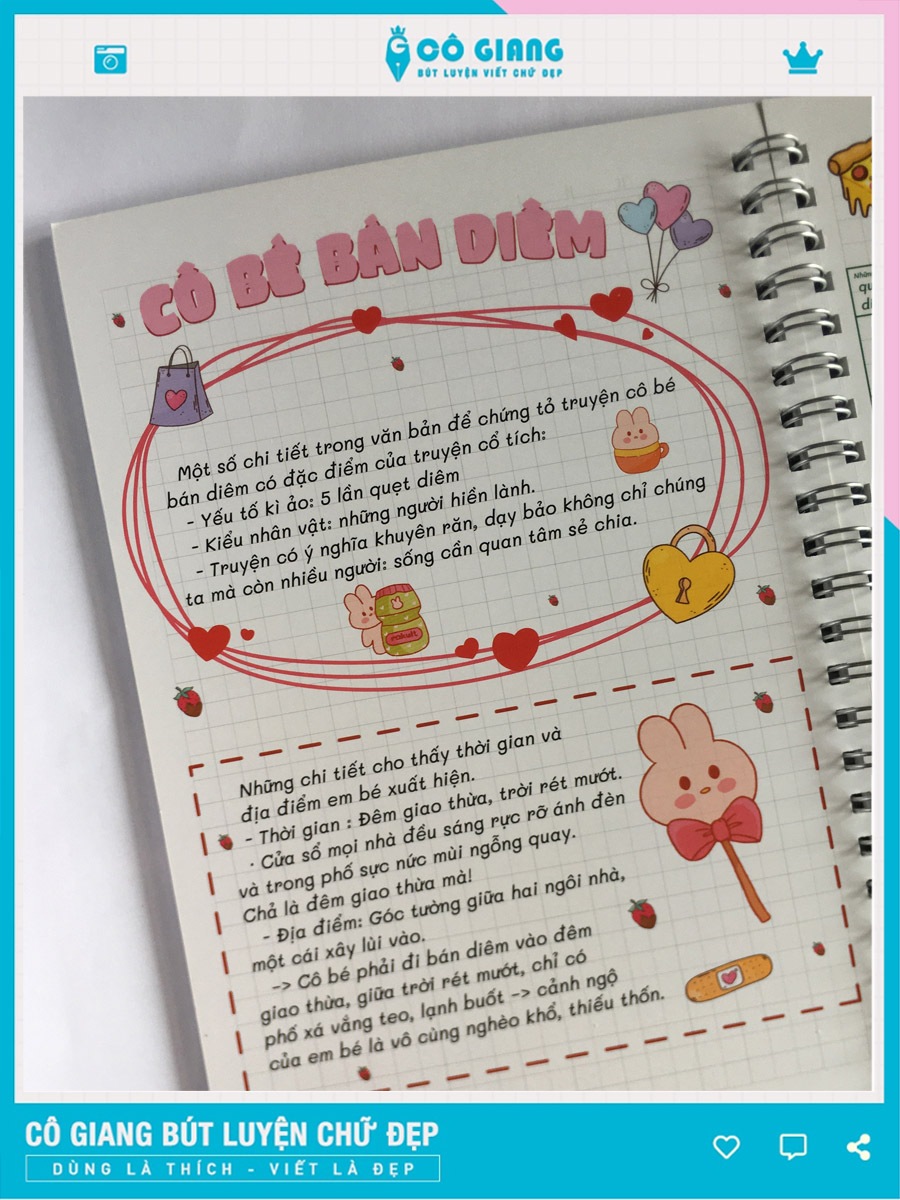 CÔ GIANG
BÚT LUYỆN VIẾT CHỮ ĐẸP
CÔ BÉ BÁN DIÊM
Một số chi tiết trong văn bản để chứng tỏ truyện cô bé
bán diêm có đặc điểm của truyện cổ tích:
- Yếu tố kì ảo: 5 lần quẹt diêm
- Kiểu nhân vật: những người hiền lành.
- Truyện có ý nghĩa khuyên răn, dạy bảo không chỉ chúng
ta mà còn nhiều người: sống cần quan tâm sẻ chia.
Những chi tiết cho thấy thời gian và
địa điểm em bé xuất hiện.
- Thời gian : Đêm giao thừa, trời rét mướt.
· Cửa sổ mọi nhà đều sáng rực rỡ ánh đèn
và trong phố sực nức mùi ngỗng quay.
Chả là đêm giao thừa mà!
- Địa điểm: Góc tường giữa hai ngôi nhà,
một cái xây lùi vào.
-> Cô bé phải đi bán diêm vào đêm
giao thừa, giữa trời rét mướt, chỉ có
phố xá vắng teo, lạnh buốt -> cảnh ngộ
của em bé là vô cùng nghèo khổ, thiếu thốn.
CÔ GIANG BÚT LUYỆN CHỮ ĐẸP
DÙNG LÀ THÍCH - VIẾT LÀ ĐẸP